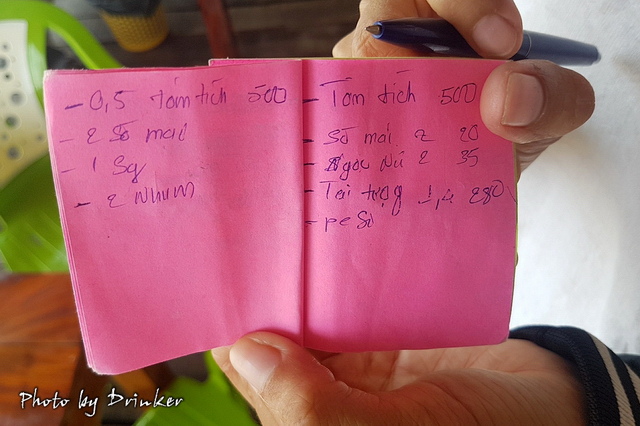 - 0,5 tôm tích 500
- 2 Sò mai
- 1 Sg
- 2 Nhum
- Tôm tích 500
- Sò mai 2 20
- Ngọc Nữ 2 35
- Tai tượng 1,2 280
- pe Si
Photo by Drinker